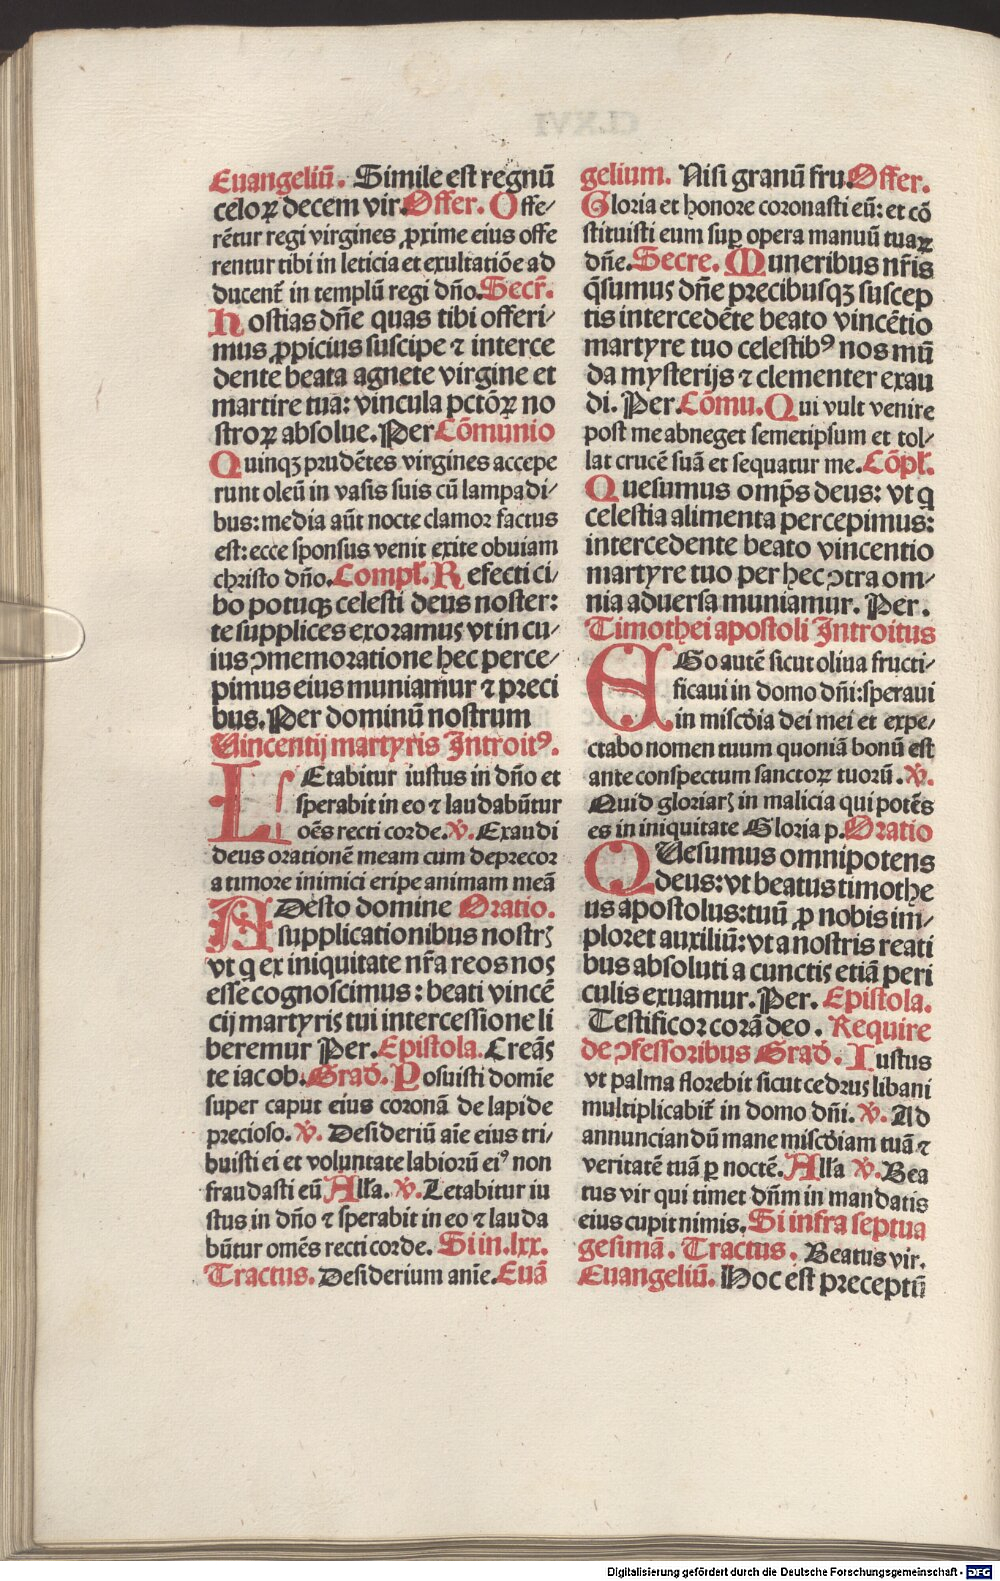 Euangeliū. Simile est regnū
celoꝝ decem vir. Offer. Offe⸗
rētur regi virgines ꝓxime eius offe
rentur tibi in leticia et exultatiōe ad
ducent᷑ in templū regi dn̄o. Secr̄.
Hostias dn̄e quas tibi offeri⸗
mus ꝓpicius suscipe ⁊ interce
dente beata agnete virgine et
martire tua: vincula pctōꝝ no
stroꝝ absolue. Per Cōmunio
Quinqꝫ prudētes virgines accepe
runt oleū in vasis suis cū lampadi⸗
bus: media aūt nocte clamor factus
est: ecce sponsus venit exite obuiam
christo dn̄o. Compl̄. Refecti ci⸗
bo potuqꝫ celesti deus noster:
te supplices exoramus vt in cu⸗
ius ↄmemoratione hec perce⸗
pimus eius muniamur ⁊ preci
bus. Per dominū nostrum
Vincentij martyris Introitꝰ.
LEtabitur iustus in dn̄o et
sperabit in eo ⁊ laudabūtur
oēs recti corde. ℣. Exaudi
deus orationē meam cum deprecor
a timore inimici eripe animam meā
ADesto domine Oratio.
supplicationibus nostrꝭ
vt q ex iniquitate nr̄a reos nos
esse cognoscimus: beati vincē
cij martyris tui intercessione li
beremur Per. Epistola. Creās
te iacob. Grad̄. Posuisti domīe
super caput eius coronā de lapide
precioso. ℣. Desideriū aīe eius tri⸗
buisti ei et voluntate labiorū eiꝰ non
fraudasti eū All̄a. ℣. Letabitur iu
stus in dn̄o ⁊ sperabit in eo ⁊ lauda
būtur omēs recti corde. Si in .lxx.
Tractus. Desiderium anīe. Euā
gelium. Nisi granū fru. Offer.
Gloria et honore coronasti eū: et cō
stituisti eum suꝑ opera manuū tuaꝝ
dn̄e. Secre. Muneribus nr̄is
q̄sumus dn̄e precibusqꝫ suscep
tis intercedēte beato vincētio
martyre tuo celestibꝰ nos mū
da mysterijs ⁊ clementer exau
di. Per. Cōmu. Qui vult venire
post me abneget semetipsum et tol⸗
lat crucē suā et sequatur me. Cōpl̄.
Quesumus omp̄s deus: vt q
celestia alimenta percepimus:
intercedente beato vincentio
martyre tuo per hec ↄtra om⸗
nia aduersa muniamur. Per.
Timothei apostoli Introitus
EGo autē sicut oliua fructi⸗
ficaui in domo dn̄i: speraui
in misc̄dia dei mei et expe⸗
ctabo nomen tuum quoniā bonū est
ante conspectum sanctoꝝ tuorū. ℣.
Quid gloriarꝭ in malicia qui potēs
es in iniquitate Gloria p. Oratio
QUesumus omnipotens
deus: vt beatus timothe
us apostolus: tuū ꝓ nobis im⸗
ploret auxiliū: vt a nostris reati
bus absoluti a cunctis etiā peri
culis exuamur. Per. Epistola.
Testificor corā deo. Require
de ↄfessoribus Grad̄. Iustus
vt palma florebit sicut cedrus libani
multiplicabit᷑ in domo dn̄i. ℣. Ad
annunciandū mane misc̄diam tuā ⁊
veritatē tuā ꝑ noctē. All̄a ℣. Bea
tus vir qui timet dn̄m in mandatis
eius cupit nimis. Si infra septua
gesimā. Tractus. Beatus vir.
Euangeliū. Hoc est preceptū
Digitalisierung gefördert durch die Deutsche Forschungsgemeinschaft - DFG